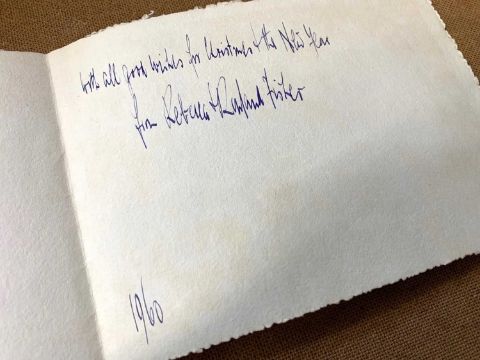 with all good wishes for Christmas & the New Year
from Rebecca &
1960